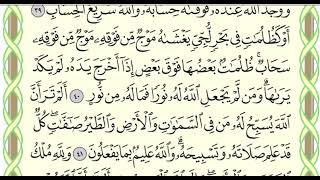 وَوَجَدَ ٱللَّهَ عِندَهُۥ فَوَفَّىٰهُ حِسَابَهُۥ وَٱللَّهُ سَرِيعُ ٱلْحِسَابِ ٣٩
أَوْ كَظُلُمَٰتٍ فِى بَحْرٍ لُّجِّىٍّ يَغْشَىٰهُ مَوْجٌ مِّن فَوْقِهِۦ مَوْجٌ مِّن فَوْقِهِۦ
سَحَابٌ ظُلُمَٰتٌۢ بَعْضُهَا فَوْقَ بَعْضٍ إِذَآ أَخْرَجَ يَدَهُۥ لَمْ يَكَدْ
يَرَىٰهَا وَمَن لَّمْ يَجْعَلِ ٱللَّهُ لَهُۥ نُورًا فَمَا لَهُۥ مِن نُّورٍ ٤٠ أَلَمْ تَرَ أَنَّ
ٱللَّهَ يُسَبِّحُ لَهُۥ مَن فِى ٱلسَّمَٰوَٰتِ وَٱلْأَرْضِ وَٱلطَّيْرُ صَٰٓفَّٰتٍ كُلٌّ
قَدْ عَلِمَ صَلَاتَهُۥ وَتَسْبِيحَهُۥ وَٱللَّهُ عَلِيمٌۢ بِمَا يَفْعَلُونَ ٤١ وَلِلَّهِ مُلْكُ